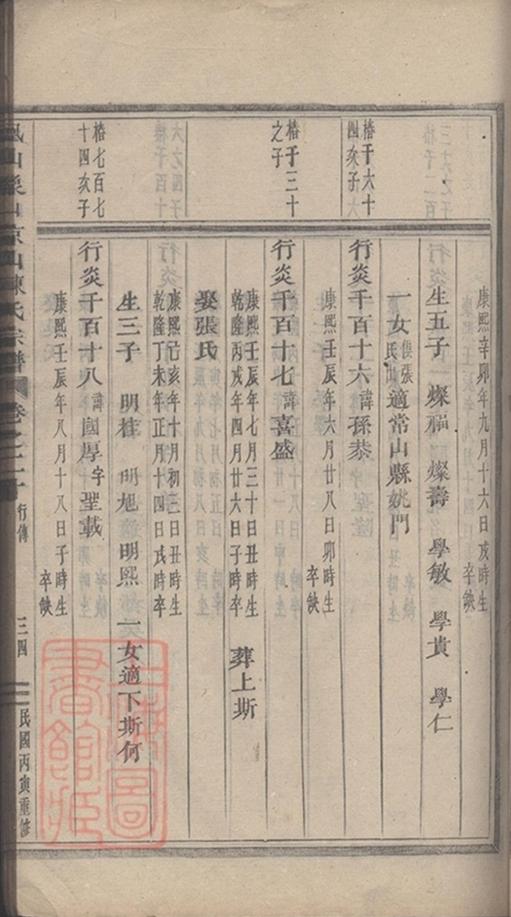 康熙辛卯年九月十六日戌時生
卒缺
生五子 燦福 燦壽 學敏 學貴 學仁
一女 適常山縣姚門
椿千六十
四次子
行炎千百十六 諱孫恭
康熙壬辰年六月廿八日卯時生
卒缺
椿千三十
之子
行炎千百十七 諱喜盛
康熙壬辰年七月三十日丑時生
乾隆丙戌年四月廿六日子時卒
葬上斯
娶張氏
康熙己亥年十月初三日丑時生
乾隆丁未年正月十四日戌時卒
生三子 明桂 明旭 明熙 一女適下斯何
椿七百七
十四次子
行炎千百十八 諱國厚 字聖載
康熙壬辰年八月十八日子時生
卒缺
山陳氏宗譜 卷之二十 行傳 三四 民國丙寅重修